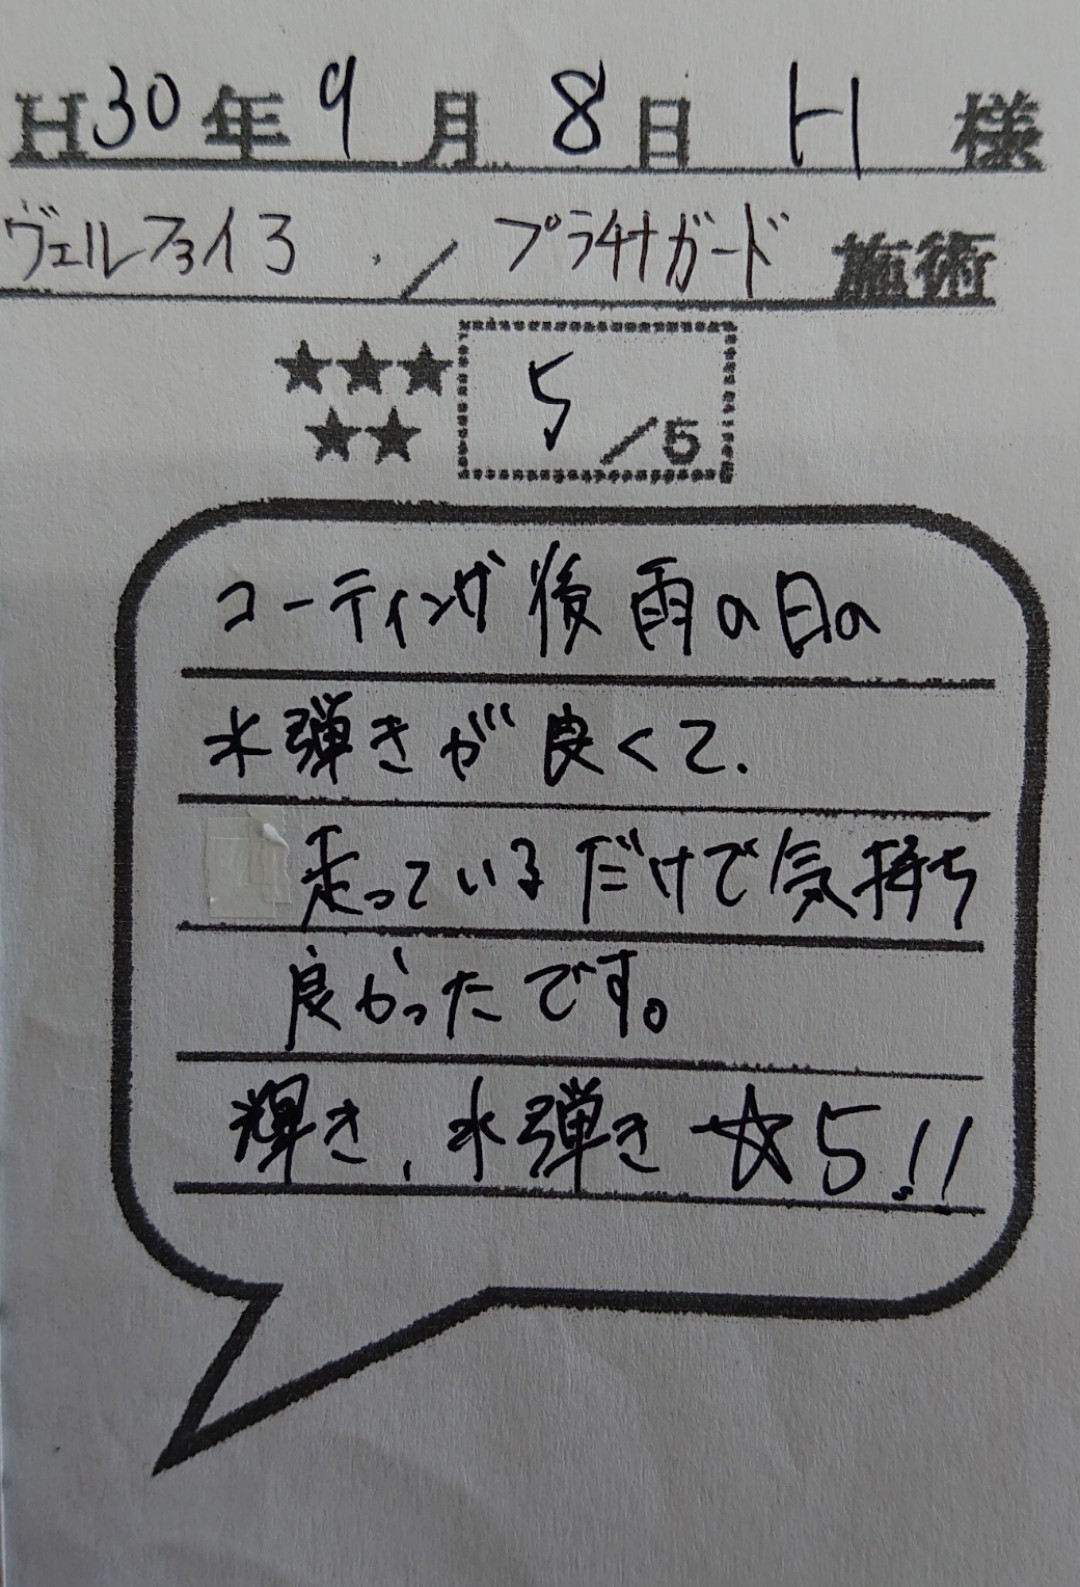 H30年9月8日 H 様
ヴェルファイア / プラチナガード 施術
★★★
★★ 5/5
コーティング後雨の日の
水弾きが良くて、
走っているだけで気持ち
良かったです。
輝き、水弾き☆5!!